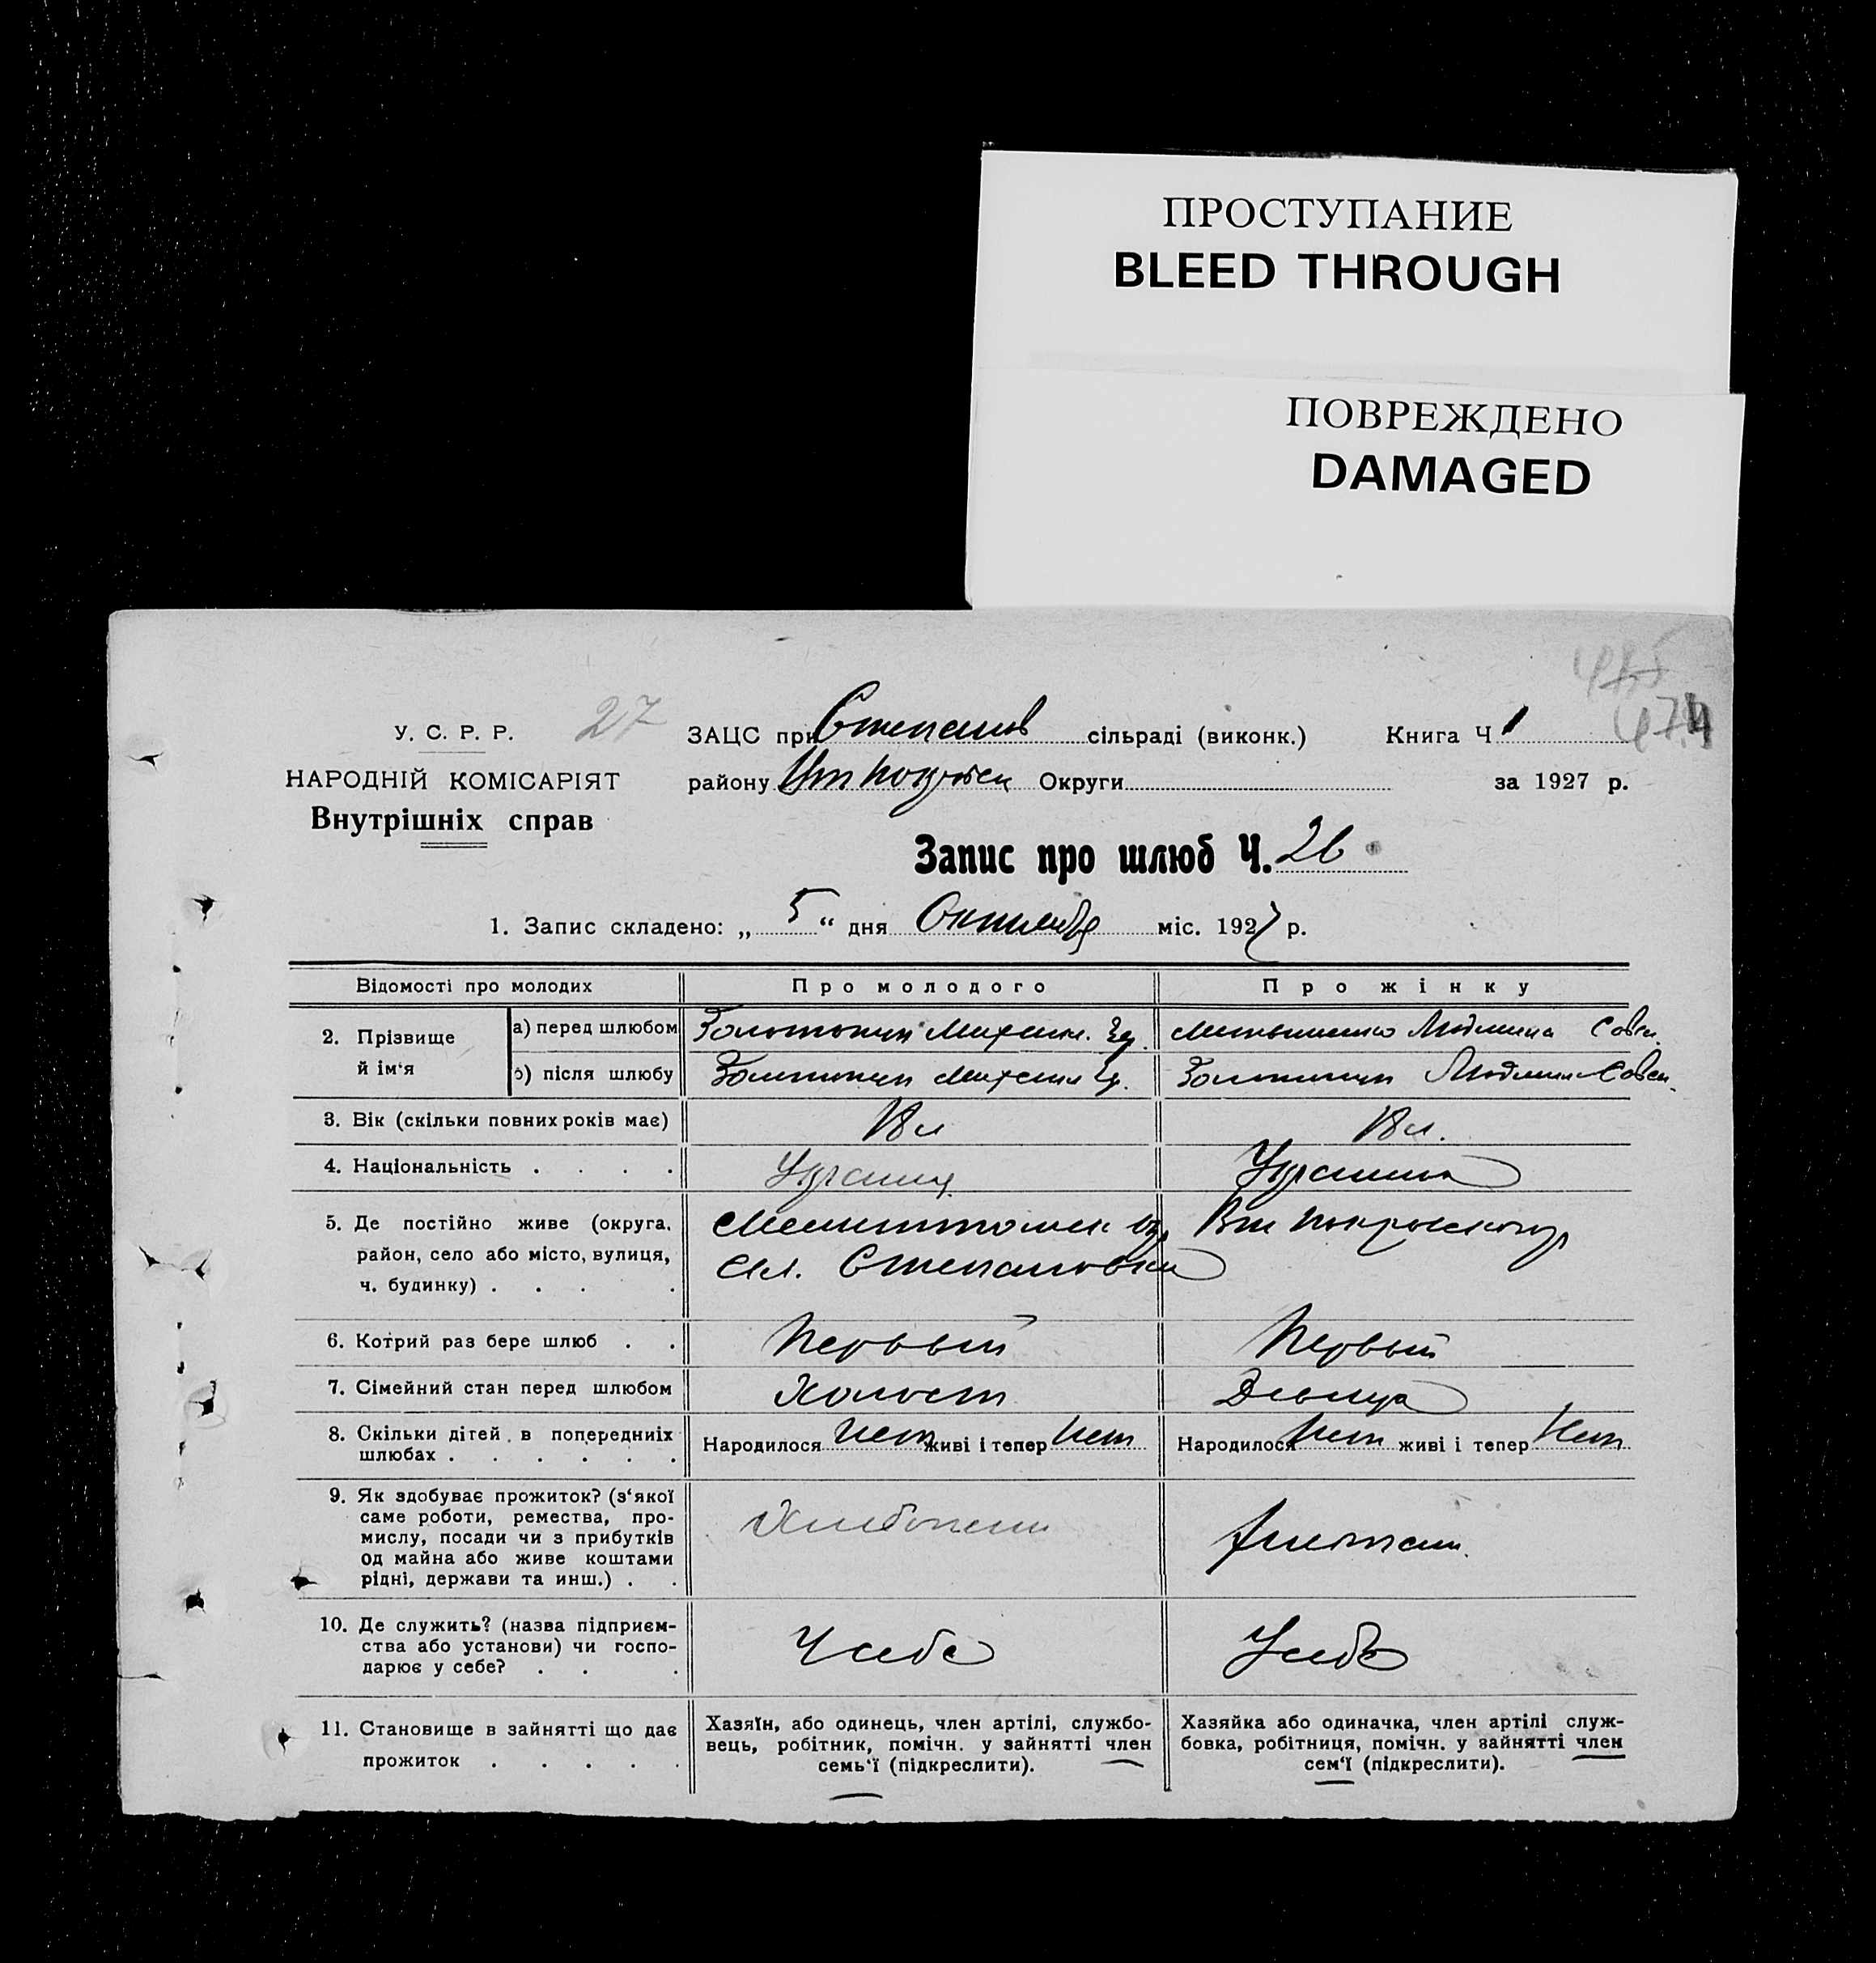 ПРОСТУПАНИЕ
BLEED THROUGH
ПОВРЕЖДЕНО
DAMAGED
У. С. Р. Р. 27 ЗАЦС при Степанов сільраді (виконк.) Книга Ч 1
НАРОДНІЙ КОМІСАРІЯТ району Округи за 1927 р.
Внутрішніх справ
Запис про шлюб Ч. 26
1. Запис складено: „ 5 “ дня Октября міс. 1927 р.
Відомості про молодих Про молодого Про жінку
2. Прізвище й ім‘я
а) перед шлюбом Людмила
б) після шлюбу Людмил
3. Вік (скільки повних років має) 18 л 18 л.
4. Національність . . . . Украин
5. Де постійно живе (округа,
район, село або місто, вулиця,
ч. будинку) . . . . Степановка
6. Котрий раз бере шлюб . . Первый Первый
7. Сімейний стан перед шлюбом Холост Девица
8. Скільки дітей в попередніх Народилося Нет живі і тепер Нет Народилося Нет живі і тепер Нет
шлюбах . . . . . .
9. Як здобуває прожиток? (з‘якої
саме роботи, ремества, про-
мислу, посади чи з прибутків
од майна або живе коштами
рідні, держави та инш.) . .
10. Де служить? (назва підприєм-
ства або установи) чи госпо-
дарює у себе? . . . У себе У себе
11. Становище в зайнятті що дає
прожиток . . . . .
Хазяїн, або одинець, член артілі, службо-
вець, робітник, помічн. у зайнятті член
семь‘ї (підкреслити).
Хазяйка або одиначка, член артілі служ-
бовка, робітниця, помічн. у зайнятті член
сем‘ї (підкреслити).